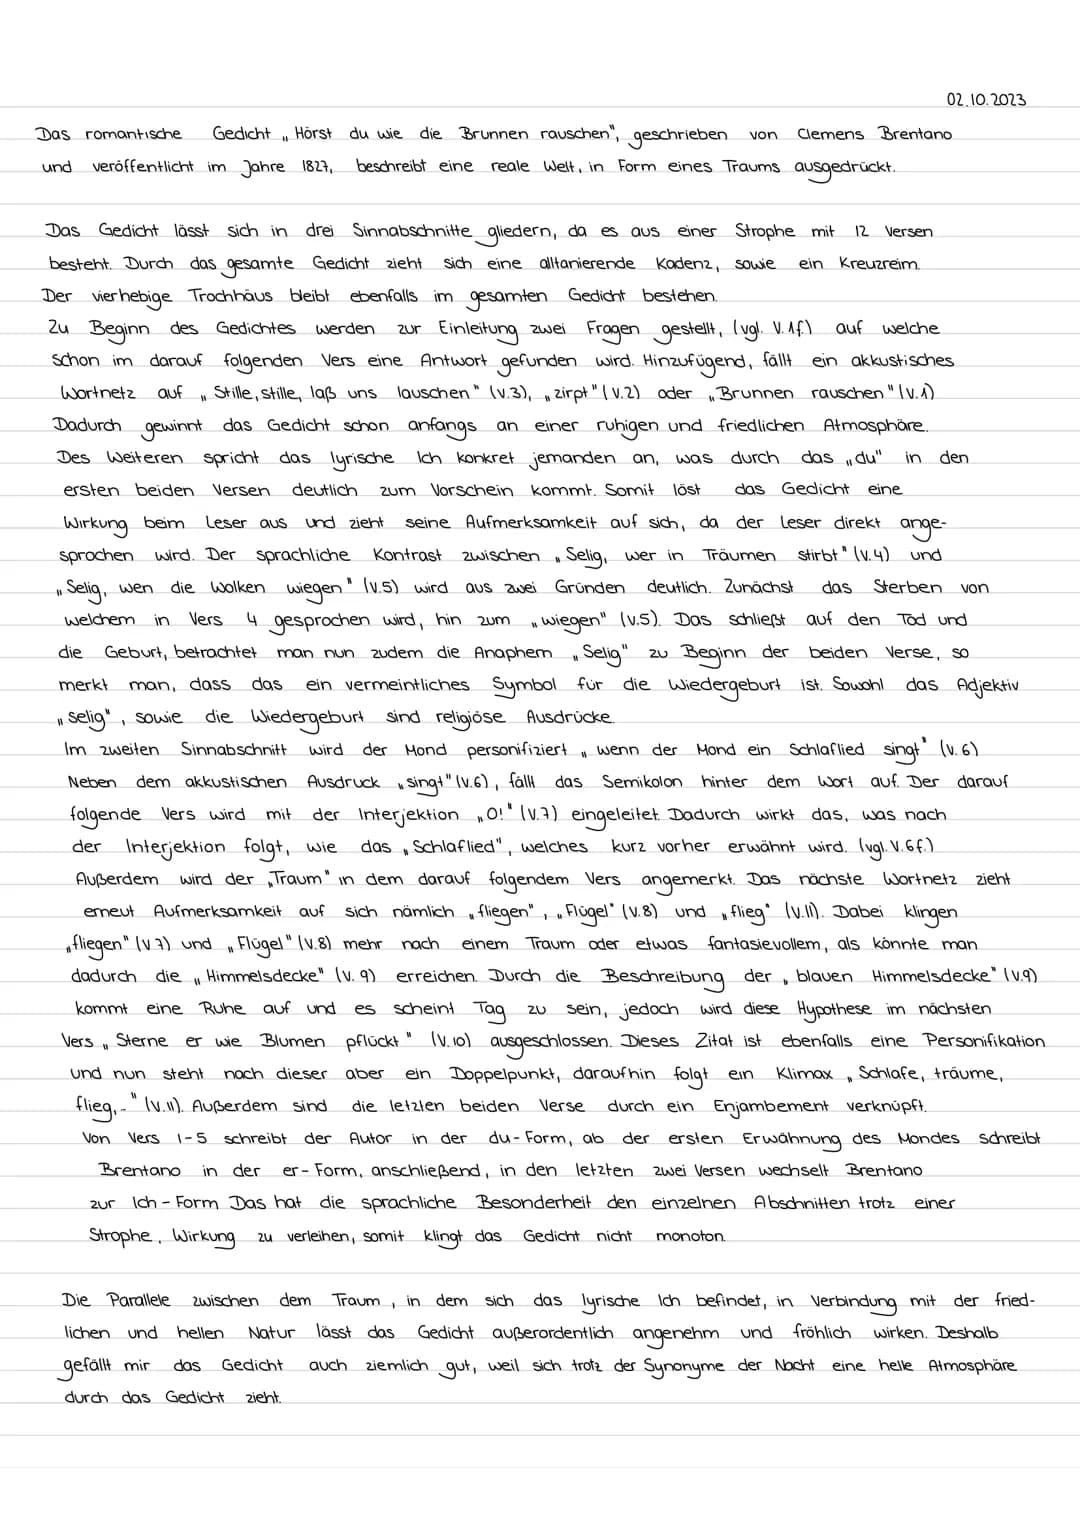 02.10.2023
Das romantische Gedicht „Hörst du wie die Brunnen rauschen", geschrieben von Clemens Brentano
und veröffentlicht im Jahre 1827, beschreibt eine reale Welt, in Form eines Traums ausgedrückt.
Das Gedicht lässt sich in drei Sinnabschnitte gliedern, da es aus einer Strophe mit 12 Versen
besteht. Durch das gesamte Gedicht zieht sich eine altanierende Kadenz, sowie ein Kreuzreim.
Der vierhebige Trochhäus bleibt ebenfalls im gesamten Gedicht bestehen.
Zu Beginn des Gedichtes werden zur Einleitung zwei Fragen gestellt, (vgl. V. 1f.) auf welche
schon im darauf folgenden Vers eine Antwort gefunden wird. Hinzufügend, fällt ein akkustisches
Wortnetz auf „Stille, stille, laß uns lauschen" (v.3), „zirpt" (v.2) oder „Brunnen rauschen" (v.1)
Dadurch gewinnt das Gedicht schon anfangs an einer ruhigen und friedlichen Atmosphäre.
Des Weiteren spricht das lyrische Ich konkret jemanden an, was durch das „du" in den
ersten beiden Versen deutlich zum Vorschein kommt. Somit löst das Gedicht eine
Wirkung beim Leser aus und zieht seine Aufmerksamkeit auf sich, da der Leser direkt ange-
sprochen wird. Der sprachliche Kontrast zwischen „Selig, wer in Träumen stirbt" (v.4) und
„Selig, wen die Wolken wiegen" (v.5) wird aus zwei Gründen deutlich. Zunächst das Sterben von
welchem in Vers 4 gesprochen wird, hin zum „wiegen" (v.5). Das schließt auf den Tod und
die Geburt, betrachtet man nun zudem die Anaphern „Selig" zu Beginn der beiden Verse, so
merkt man, dass das ein vermeintliches Symbol für die Wiedergeburt ist. Sowohl das Adjektiv
„selig", sowie die Wiedergeburt sind religiöse Ausdrücke.
Im zweiten Sinnabschnitt wird der Mond personifiziert „wenn der Mond ein Schlaflied singt" (v.6)
Neben dem akkustischen Ausdruck „singt" (v.6), fällt das Semikolon hinter dem Wort auf. Der darauf
folgende Vers wird mit der Interjektion „O!" (v.7) eingeleitet. Dadurch wirkt das, was nach
der Interjektion folgt, wie das „Schlaflied", welches kurz vorher erwähnt wird. (vgl. V.6f.)
Außerdem wird der „Traum" in dem darauf folgendem Vers angemerkt. Das nächste Wortnetz zieht
erneut Aufmerksamkeit auf sich nämlich „fliegen", „Flügel" (v.8) und „flieg" (v.11). Dabei klingen
„fliegen" (v.7) und „Flügel" (v.8) mehr nach einem Traum oder etwas fantasievollem, als könnte man
dadurch die „Himmelsdecke" (v.9) erreichen. Durch die Beschreibung der „blauen Himmelsdecke" (v.9)
kommt eine Ruhe auf und es scheint Tag zu sein, jedoch wird diese Hypothese im nächsten
Vers „Sterne er wie Blumen pflückt" (v.10) ausgeschlossen. Dieses Zitat ist ebenfalls eine Personifikation
und nun steht nach dieser aber ein Doppelpunkt, daraufhin folgt ein Klimax „Schlafe, träume,
flieg,.." (v.11). Außerdem sind die letzten beiden Verse durch ein Enjambement verknüpft.
Von Vers 1-5 schreibt der Autor in der du-Form, ab der ersten Erwähnung des Mondes schreibt
Brentano in der er-Form, anschließend, in den letzten zwei Versen wechselt Brentano
zur Ich-Form. Das hat die sprachliche Besonderheit den einzelnen Abschnitten trotz einer
Strophe, Wirkung zu verleihen, somit klingt das Gedicht nicht monoton.
Die Parallele zwischen dem Traum, in dem sich das lyrische Ich befindet, in Verbindung mit der fried-
lichen und hellen Natur lässt das Gedicht außerordentlich angenehm und fröhlich wirken. Deshalb
gefällt mir das Gedicht auch ziemlich gut, weil sich trotz der Synonyme der Nacht eine helle Atmosphäre
durch das Gedicht zieht.